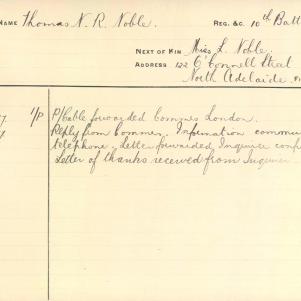 NAME Thomas N. R. Noble. REG. &C. 10th Batt
NEXT OF KIN Miss L. Noble.
ADDRESS 122 O'Connell Street
North Adelaide
7 1/P P/Cable forwarded Commrs London.
Reply from Commrs. Information commu
telephone. Letter forwarded Inquirer conf
Letter of thanks received from Inquirer